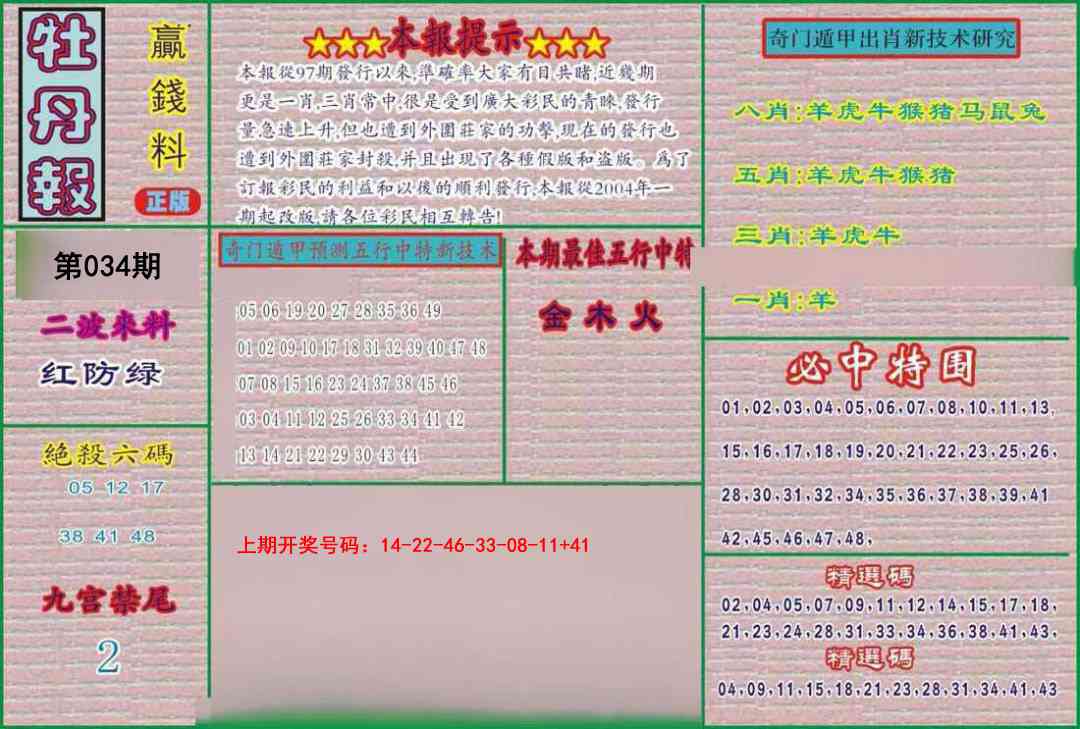 牡丹報
贏錢料
正版
★★★本報提示★★★
本報從97期發行以來,準確率大家有目共睹,近幾期
更是一肖,三肖常中,很是受到廣大彩民的青睞,發行
量急速上升,但也遭到外圍莊家的功擊,現在的發行也
遭到外圍莊家封殺,并且出現了各種假版和盗版。爲了
訂報彩民的利益和以後的順利發行,本報從2004年一
期起改版,請各位彩民相互轉告!
奇门遁甲出肖新技术研究
八肖:羊虎牛猴猪马鼠兔
五肖:羊虎牛猴猪
三肖:羊虎牛
一肖:羊
第034期
二波来料
红防绿
奇门遁甲预测五行中特新技术
05 06 19 20 27 28 35 36 49
01 02 09 10 17 18 31 32 39 40 47 48
07 08 15 16 23 24 37 38 45 46
03 04 11 12 25 26 33 34 41 42
13 14 21 22 29 30 43 44
本期最佳五行中特
金木火
必中特围
01,02,03,04,05,06,07,08,10,11,13,
15,16,17,18,19,20,21,22,23,25,26,
28,30,31,32,34,35,36,37,38,39,41
42,45,46,47,48,
絕殺六碼
05 12 17
38 41 48
九宫禁尾
2
上期开奖号码：14-22-46-33-08-11+41
精選碼
02,04,05,07,09,11,12,14,15,17,18,
21,23,24,28,31,33,34,36,38,41,43,
精選碼
04,09,11,15,18,21,23,28,31,34,41,43